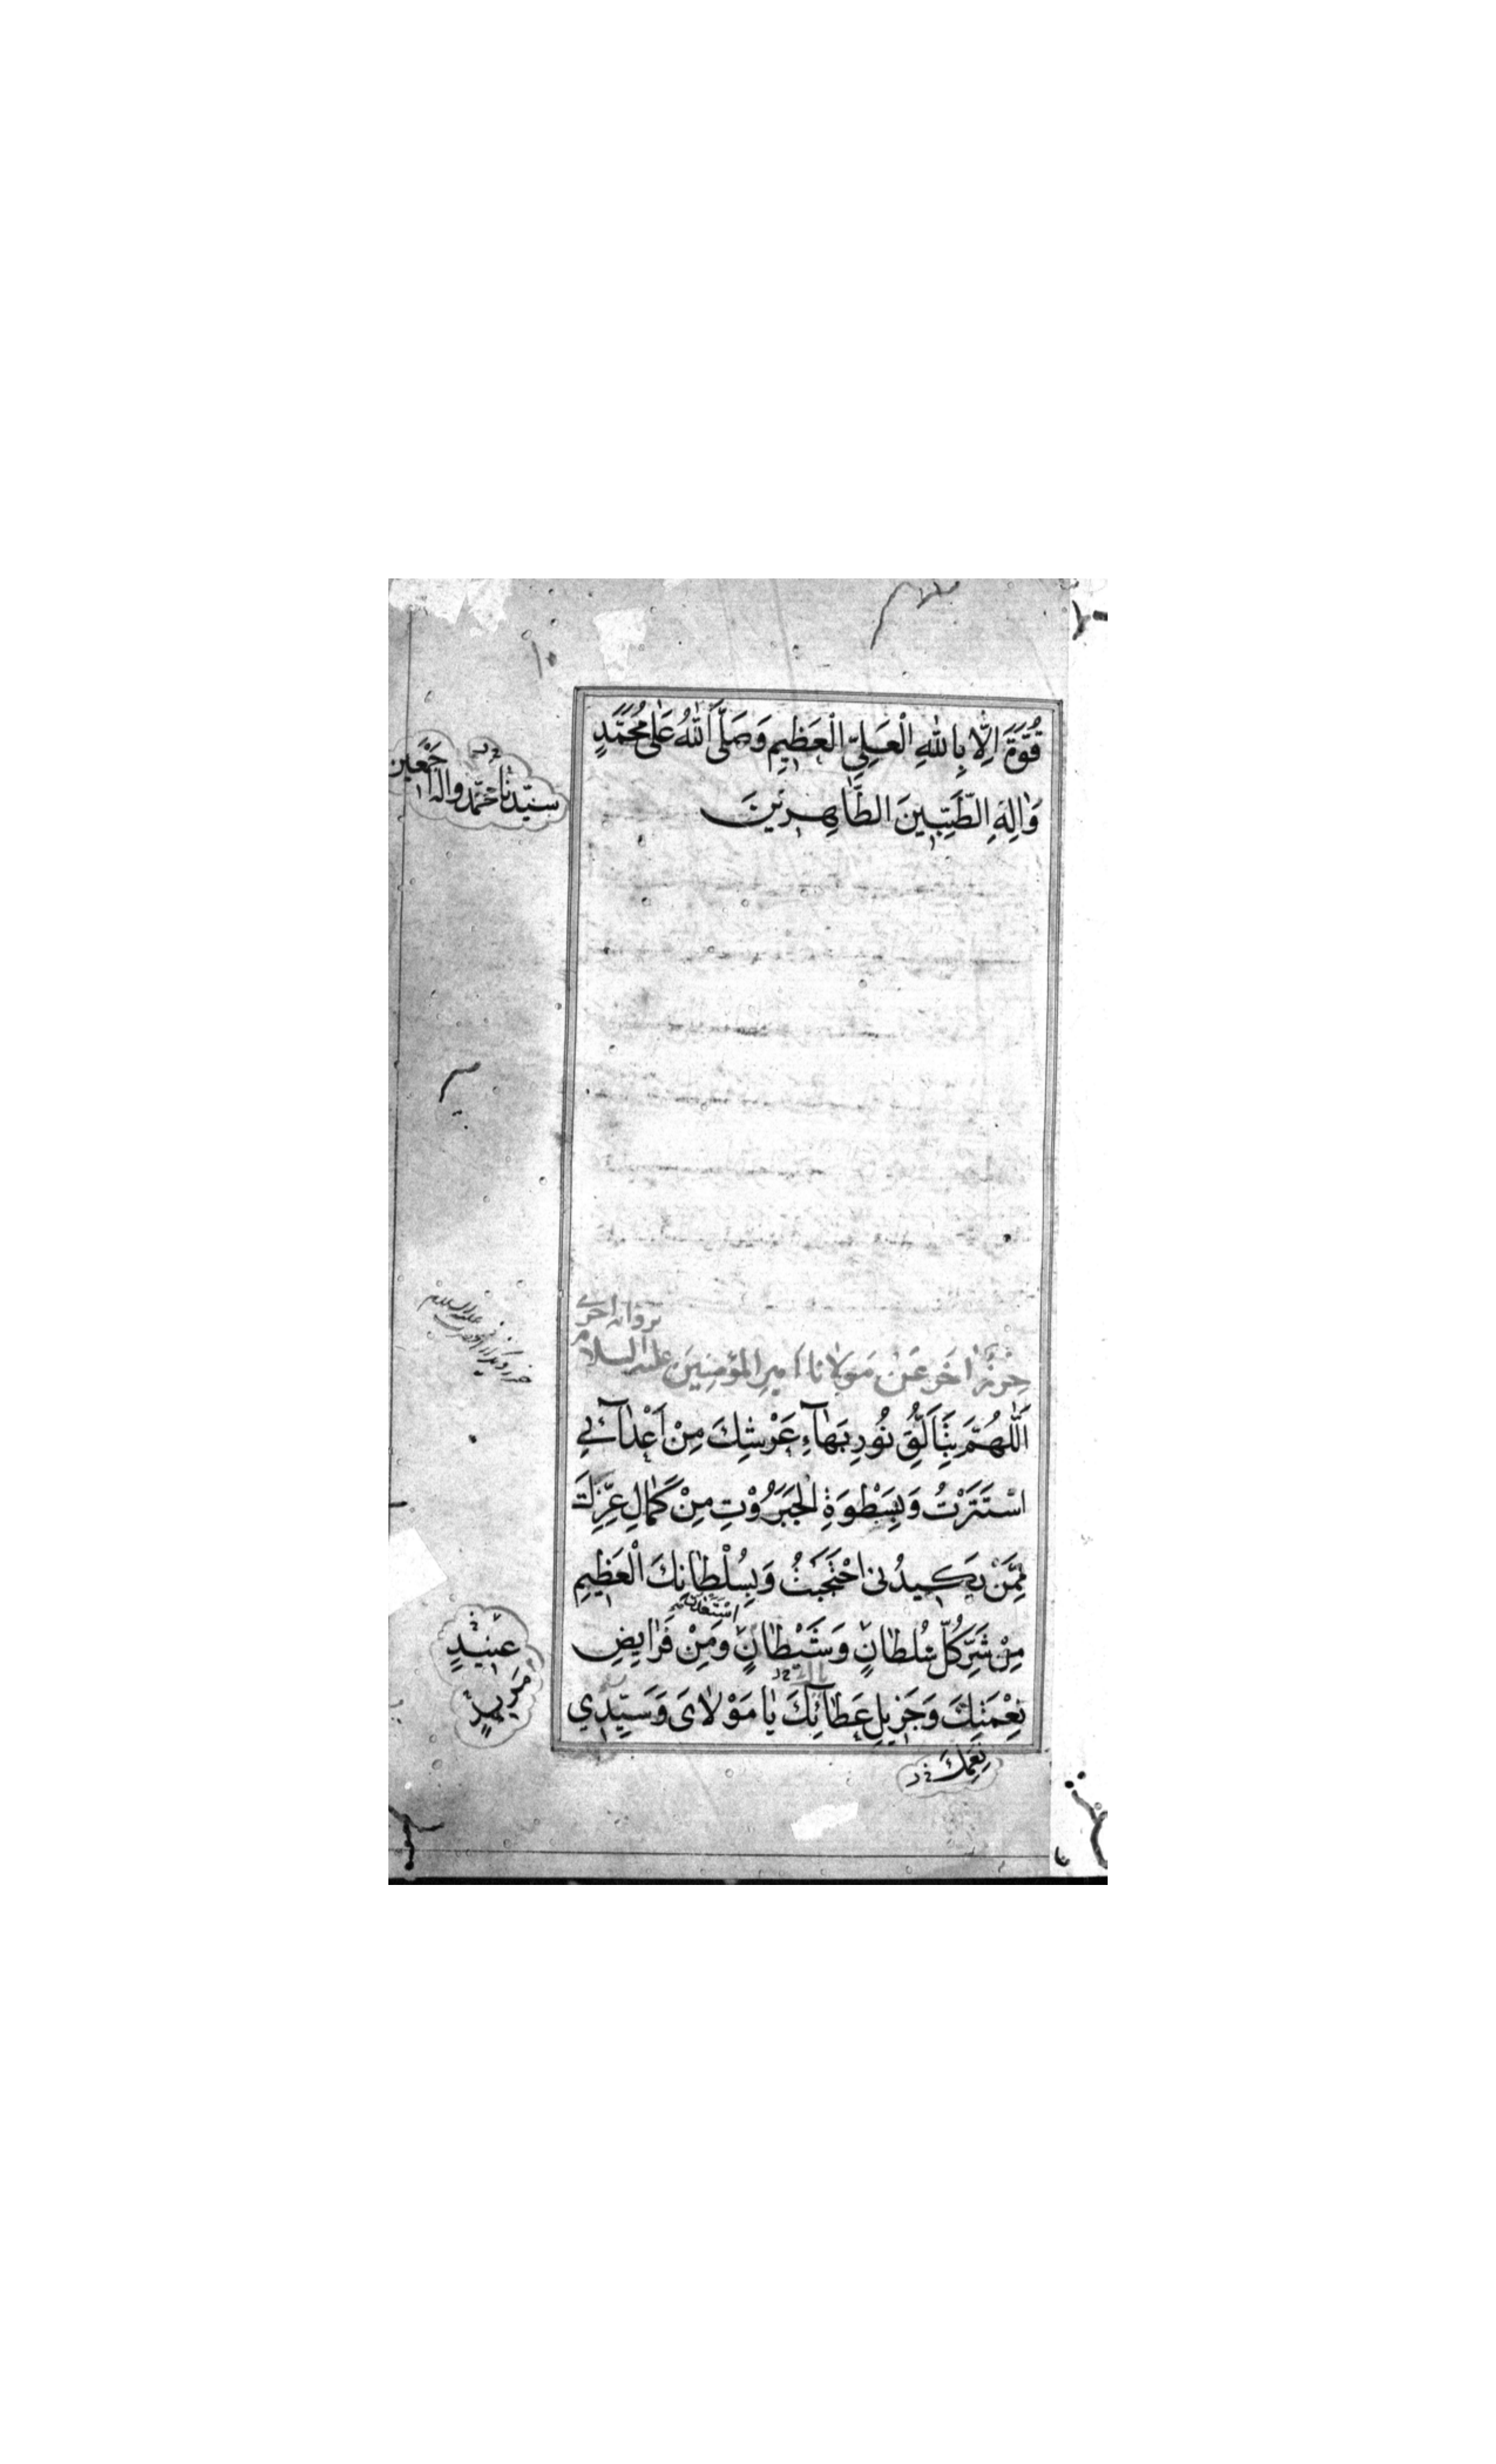 قُوَّةَ اِلّا بِاللهِ الْعَلِيِّ الْعَظِيمِ وَصَلَّى اللهُ عَلىٰ مُحَمَّدٍ
وَاٰلِهِ الطَّيِّبِينَ الطَّاهِرِينَ
سيّدنا محمّد واله اجمعين
بروایه اخری
حِرْزٌ اٰخَر عَنْ مَولانا امیرالمؤمِنِینَ علیه السلام
حرز دیگر از انحضرت علیه السلام
اَللّٰهُمَّ بِتَأَلُّقِ نُورِ بَهآءِ عَرْشِكَ مِنْ اَعْدآئي
اسْتَتَرْتُ وَبِسَطْوَةِ الْجَبَرُوْتِ مِنْ كَمالِ عِزِّكَ
مِمَّنْ يَكيدُني احْتَجَبْتُ وَبِسُلْطانِكَ الْعَظيمِ
مِنْ شَرِّ كُلِّ سُلْطانٍ وَشَيْطانٍ وَمِنْ فَرايِضِ
عنيدٍ
مَريدٍ
نِعْمَتِكَ وَجَزيلِ عَطآئِكَ يا مَوْلايَ وَسَيِّدي
نِعَمِكَ